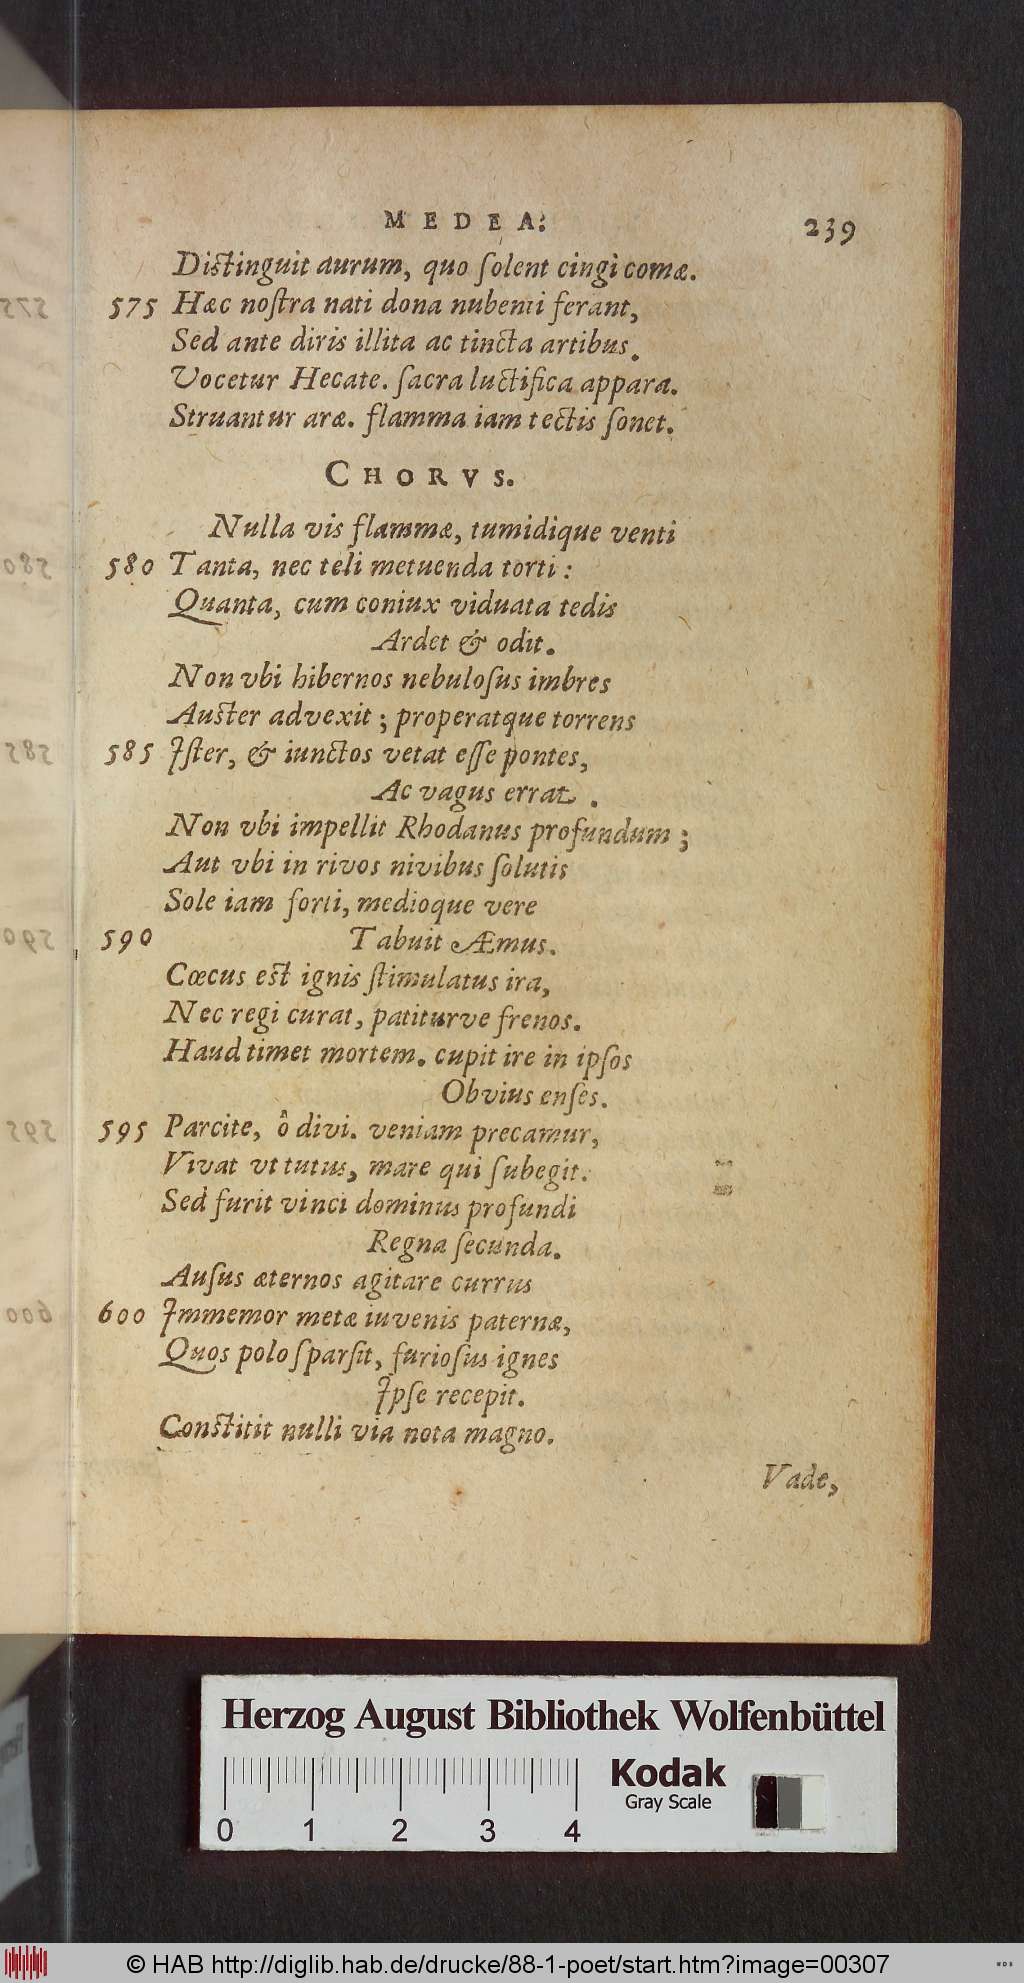 MEDEA. 239
Distinguit aurum, quo ſolent cingi comæ.
575 Hæc noſtra nati dona nubenti ferant,
Sed ante diris illita ac tincta artibus.
Vocetur Hecate. ſacra luctifica appara.
Struantur aræ. flamma iam tectis ſonet.
CHORVS.
Nulla vis flammæ, tumidique venti
580 Tanta, nec teli metuenda torti:
Quanta, cum coniux viduata tedis
Ardet & odit.
Non vbi hibernos nebuloſus imbres
Auster advexit; properatque torrens
585 Iſter, & iunctos vetat eſſe pontes,
Ac vagus errat.
Non vbi impellit Rhodanus profundum;
Aut vbi in rivos nivibus ſolutis
Sole iam forti, medioque vere
590 Tabuit Æmus.
Cœcus est ignis ſtimulatus ira,
Nec regi curat, patiturve frenos.
Haud timet mortem. cupit ire in ipſos
Obvius enſes.
595 Parcite, ô divi. veniam precamur,
Vivat vt tutus, mare qui ſubegit.
Sed furit vinci dominus profundi
Regna ſecunda.
Auſus æternos agitare currus
600 Immemor metæ iuvenis paternæ,
Quos polo ſparſit, furioſus ignes
Ipſe recepit.
Constitit nulli via nota magno.
Vade,
Herzog August Bibliothek Wolfenbüttel
Kodak
Gray Scale
0 1 2 3 4
© HAB http://diglib.hab.de/drucke/88-1-poet/start.htm?image=00307